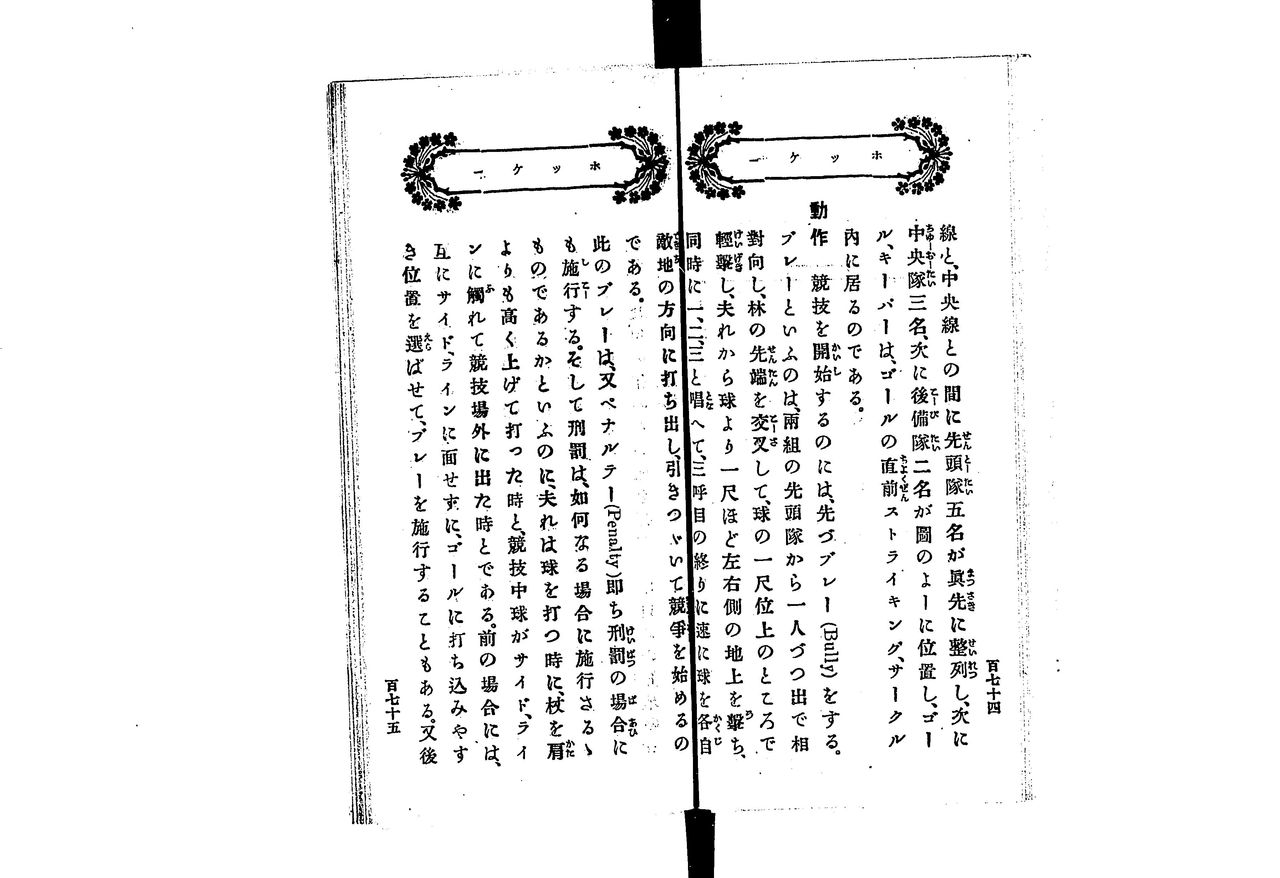 ホッケー
線と、中央線との間に先頭隊五名が眞先に整列し、次に
中央隊三名、次に後備隊二名が圖のよーに位置し、ゴー
ル、キーパーは、ゴールの直前ストライキング、サークル
內に居るのである。
動作 競技を開始するのには、先づブレー(Bully)をする。
ブレーといふのは、兩組の先頭隊から一人づつ出で相
對向し、杖の先端を交叉して、球の一尺位上のところで
輕擊し、夫れから球より一尺ほど左右側の地上を擊ち、
同時に一、二、三と唱へて、三呼目の終りに速に球を各自
百七十四
ホッケー
敵地の方向に打ち出し、引きつゞいて競爭を始めるの
である。
此のブレーは、又ペナルテー(Penalty)即ち刑罰の場合に
も施行する。そして刑罰は、如何なる場合に施行さるゝ
ものであるかといふのに、夫れは球を打つ時に、杖を肩
よりも高く上げて打った時と、競技中球がサイド、ライ
ンに觸れて競技場外に出た時とである。前の場合には、
互にサイド、ラインに面せずに、ゴールに打ち込みやす
き位置を選ばせて、ブレーを施行することもある。又後
百七十五